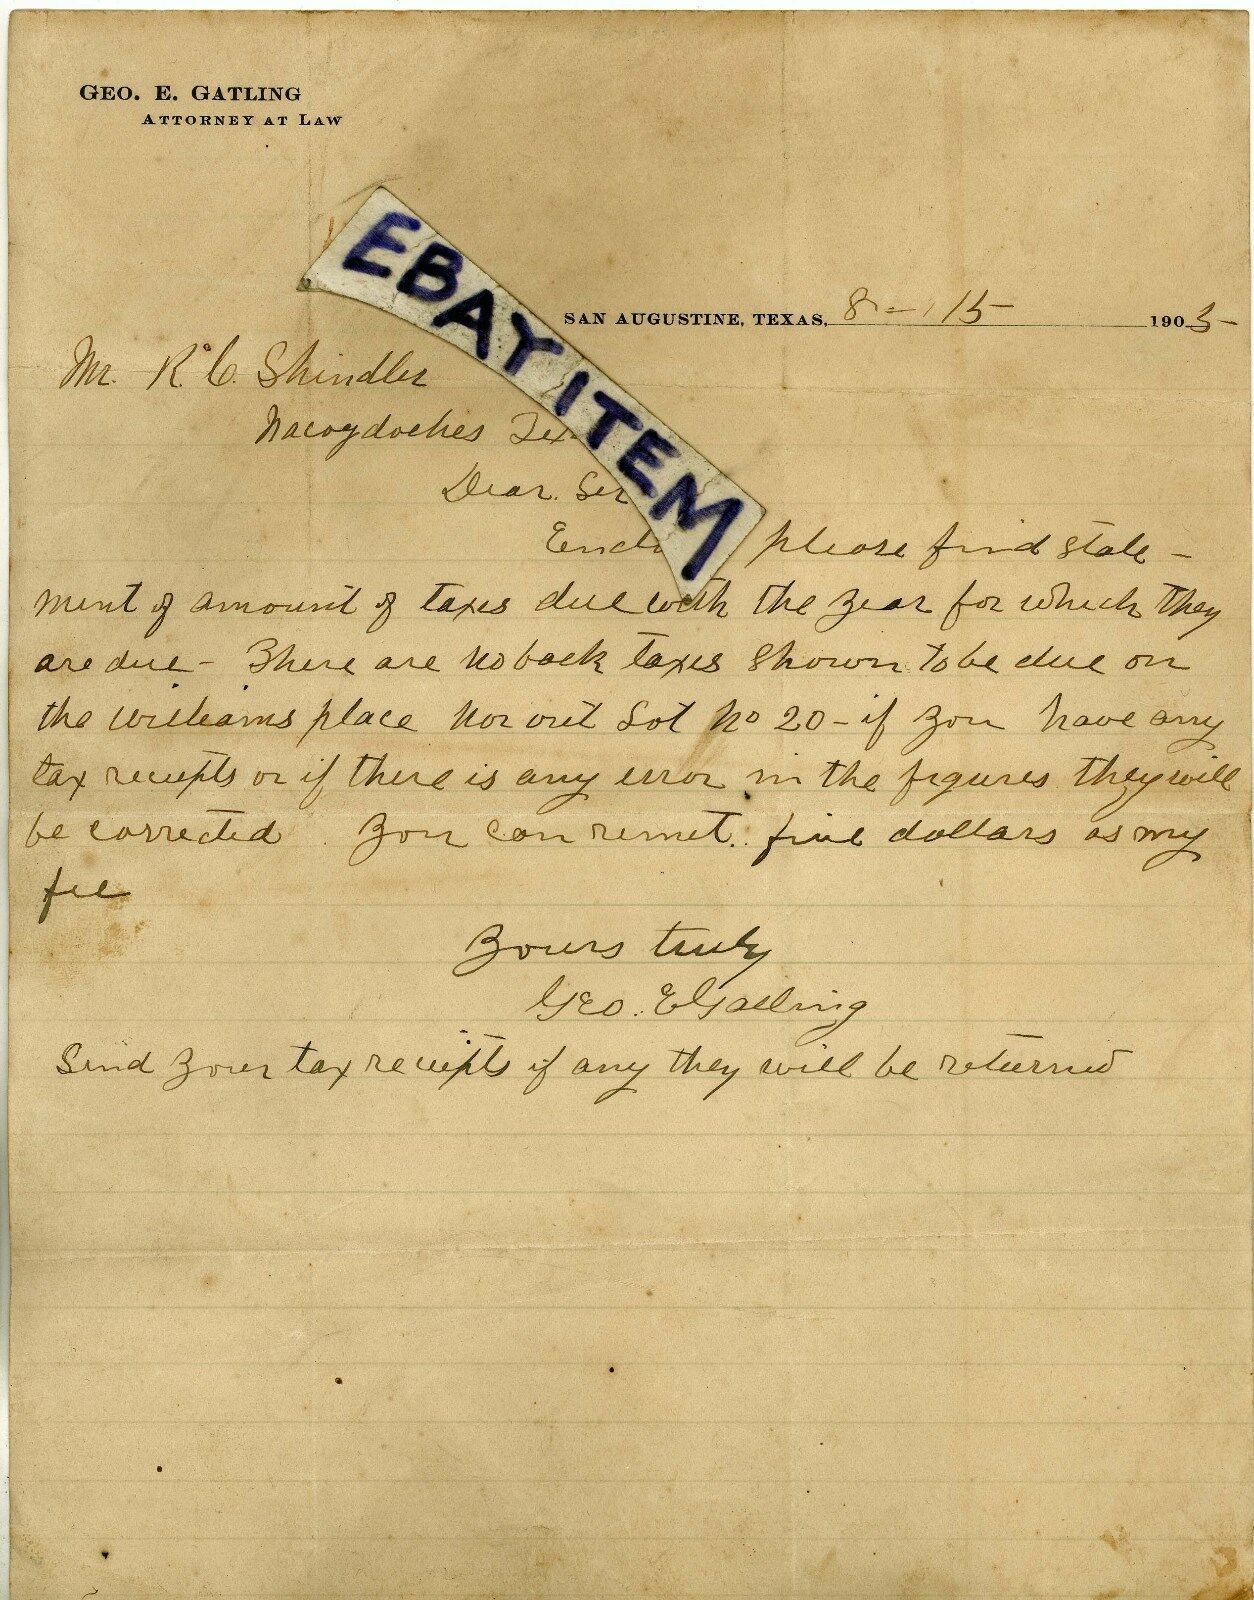 GEO. E. GATLING
ATTORNEY AT LAW
EBAY ITEM
SAN AUGUSTINE, TEXAS, 8 - 15 1905
Mr. R. C. Shindler
Nacogdoches Tex
Dear Sir
please find state-
ment of amount of taxes due with the year for which they
are due - There are no back taxes shown to be due on
the Williams place nor out Lot No 20 - if you have any
tax receipts or if there is any error in the figures they will
be corrected You can remit five dollars as my
fee
Yours truly
Geo. E Gatling
Send your tax receipts if any they will be returned